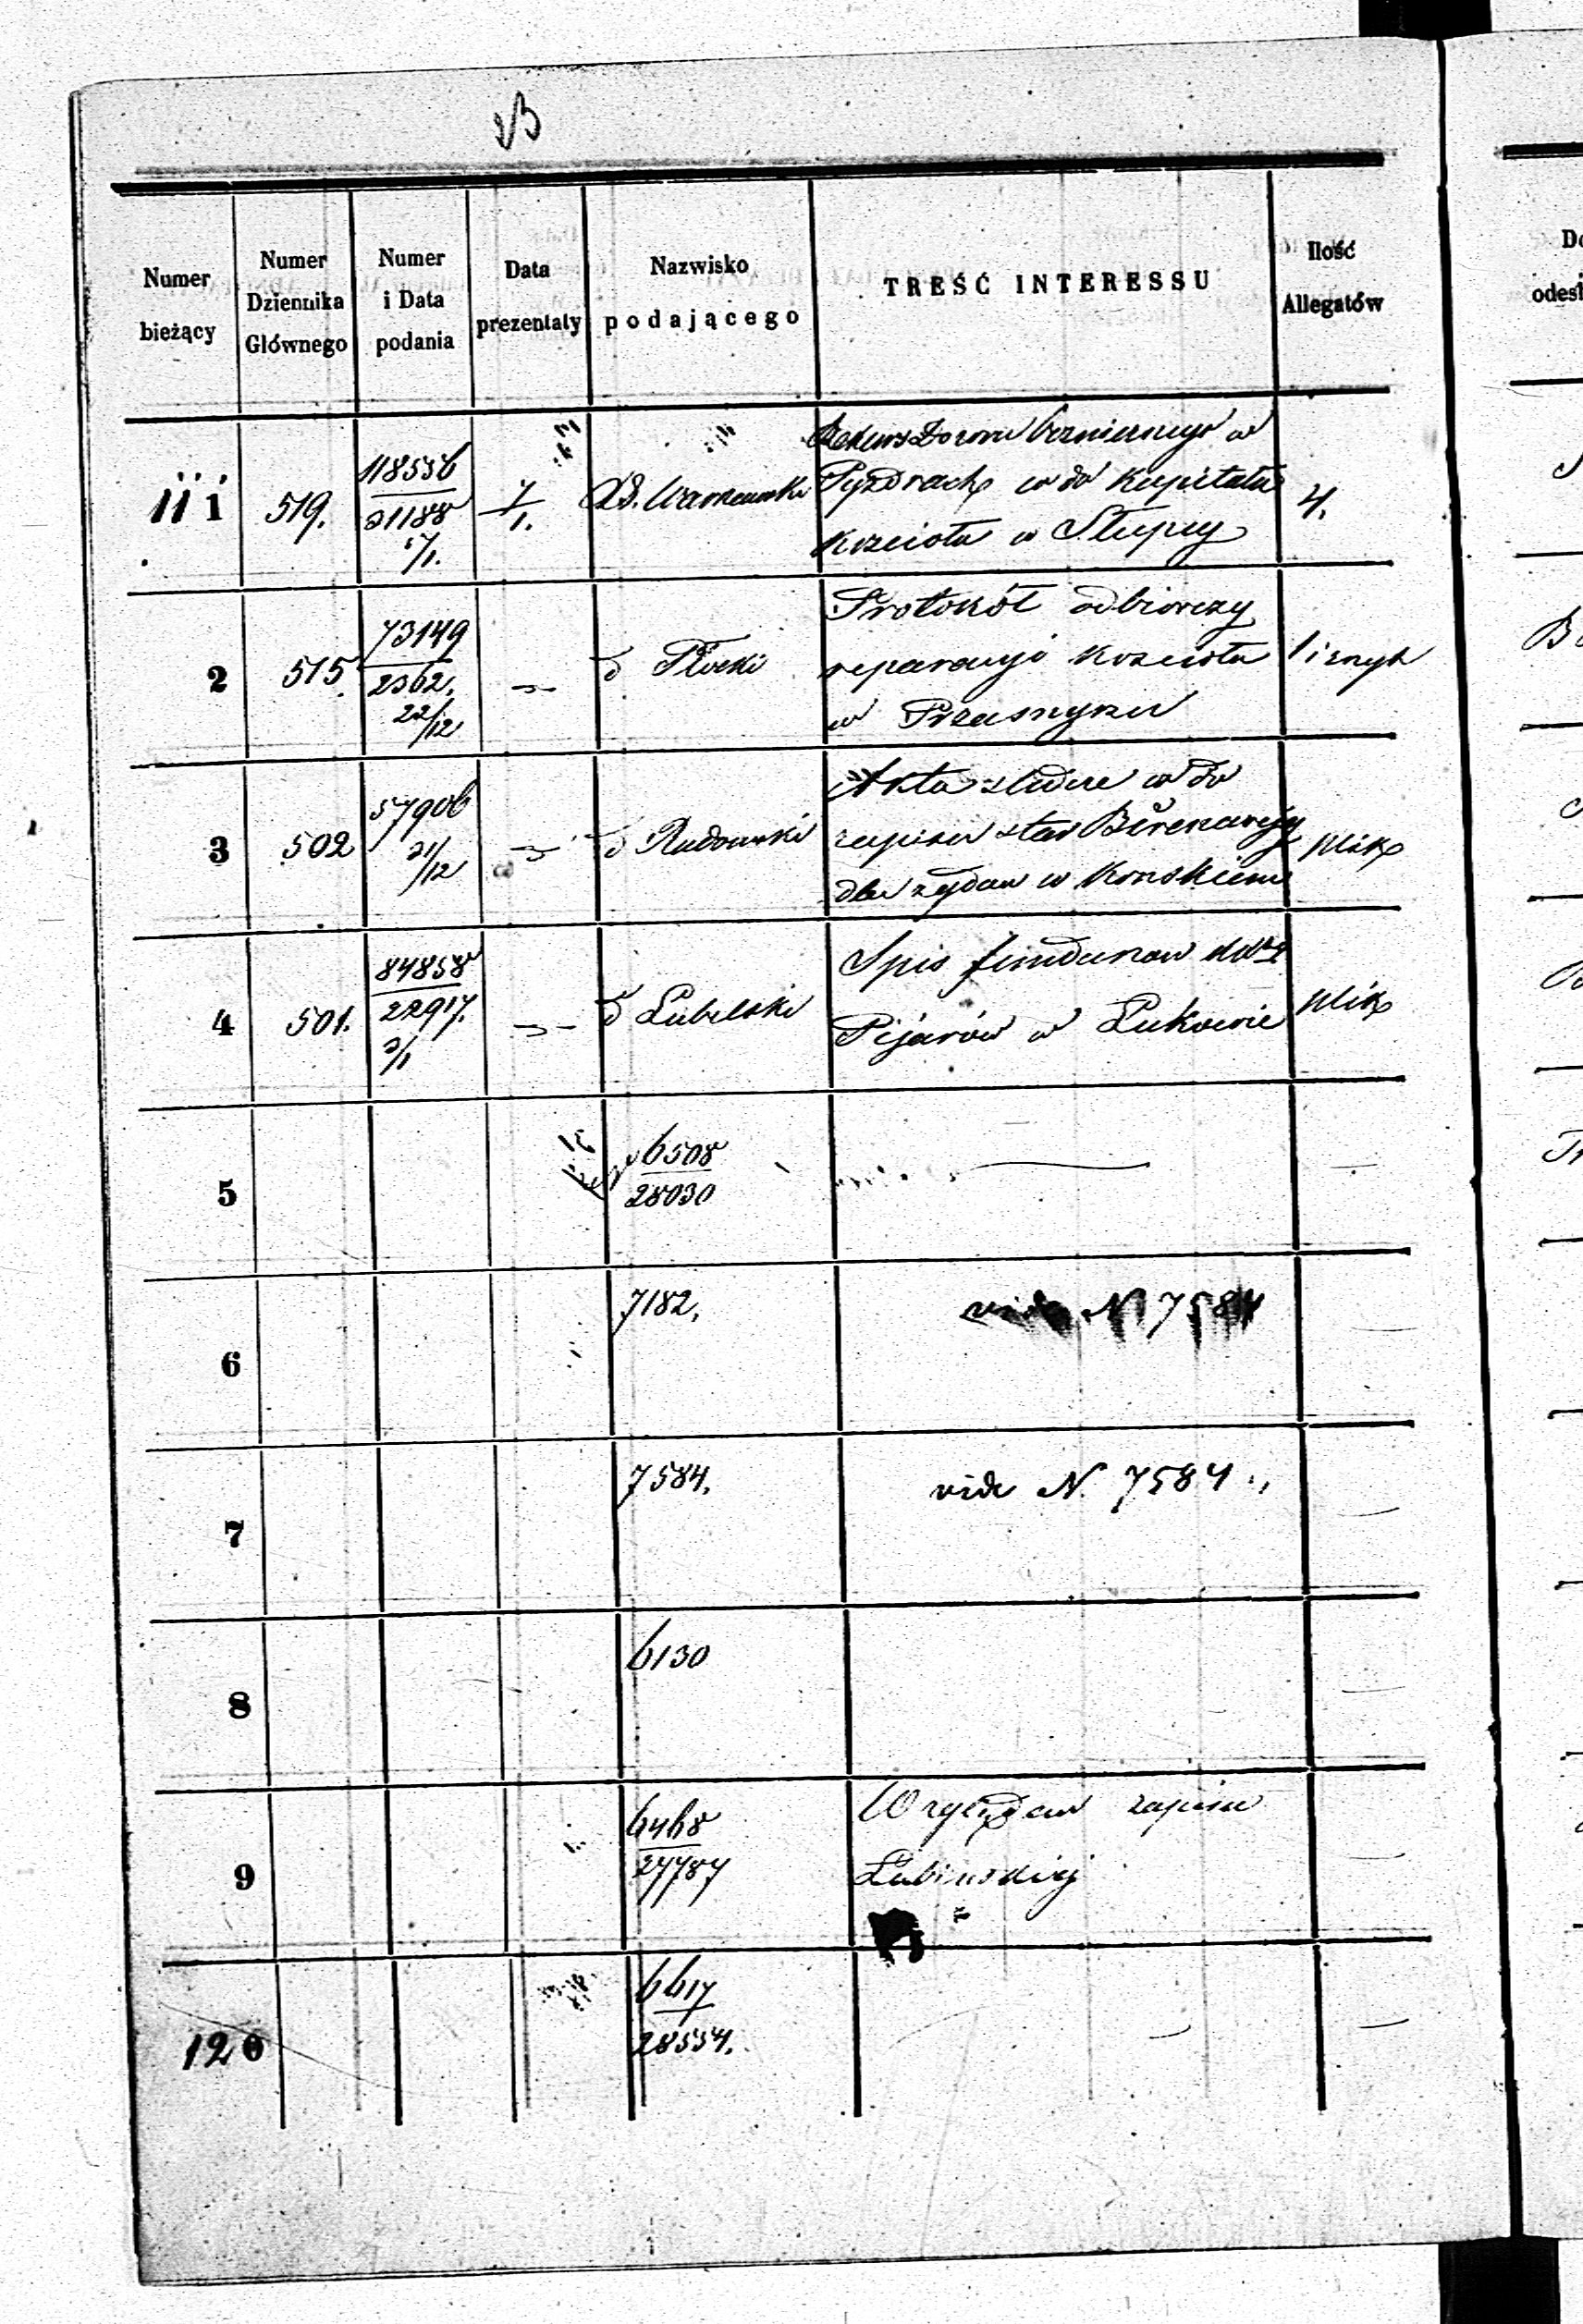 Numer bieżący
Numer Dziennika Głównego
Numer i Data podania
Data prezentaty
Nazwisko podającego
TREŚĆ INTERESSU
Ilość Allegatów
111
519.
118556
21188
7/1.
Pyzdrach w do Kapitału
kościoła w Słupcy
4.
2
515
73149
2362.
22/12
Płocki
Protokół odbiorczy
reparacyi kościoła
w Przasnyszu
1 i zszyt
3
502
57906
31/12
d Radomski
Akta śledcze w do
zapisu star
dla żydów w Końskiem
plik
4
501.
84858
22917.
3/1
d Lubelski
Spis funduszów
Pijarów w Łukowie
plik
5
6508
28030
6
7182.
vide N 7584
7
7584.
vide N. 7584
8
6130
9
6468
27787
zapisu
Łubieńskiej
120
6617
28554.